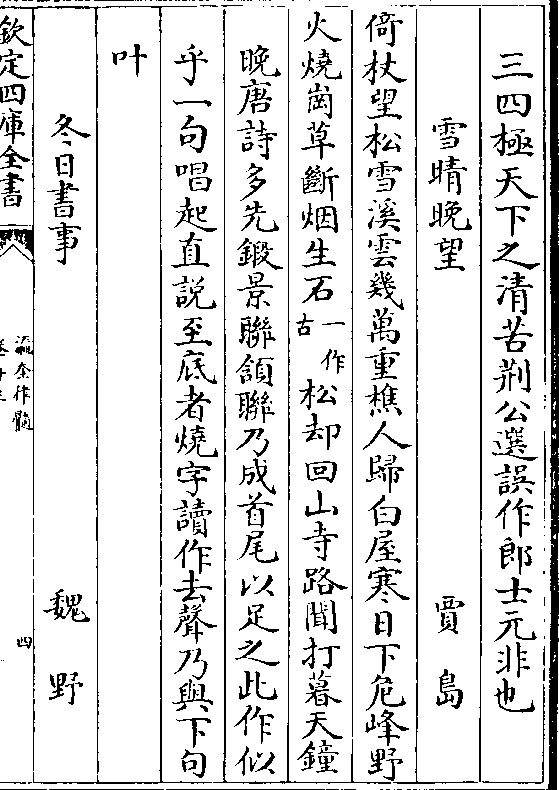 三四極天下之清苦荆公選誤作郎士元非也
雪晴晚望　賈島
倚杖望松雪溪雲幾萬重樵人歸白屋寒日下危峰野
火燒岡草斷烟生石一作古松却回山寺路聞打暮天鐘
晚唐詩多先鍛景聯頷聯乃成首尾以足之此作似
乎一句唱起直說至底者燒字讀作去聲乃與下句
叶
冬日書事　魏野
欽定四庫全書
瀛奎律髓
四